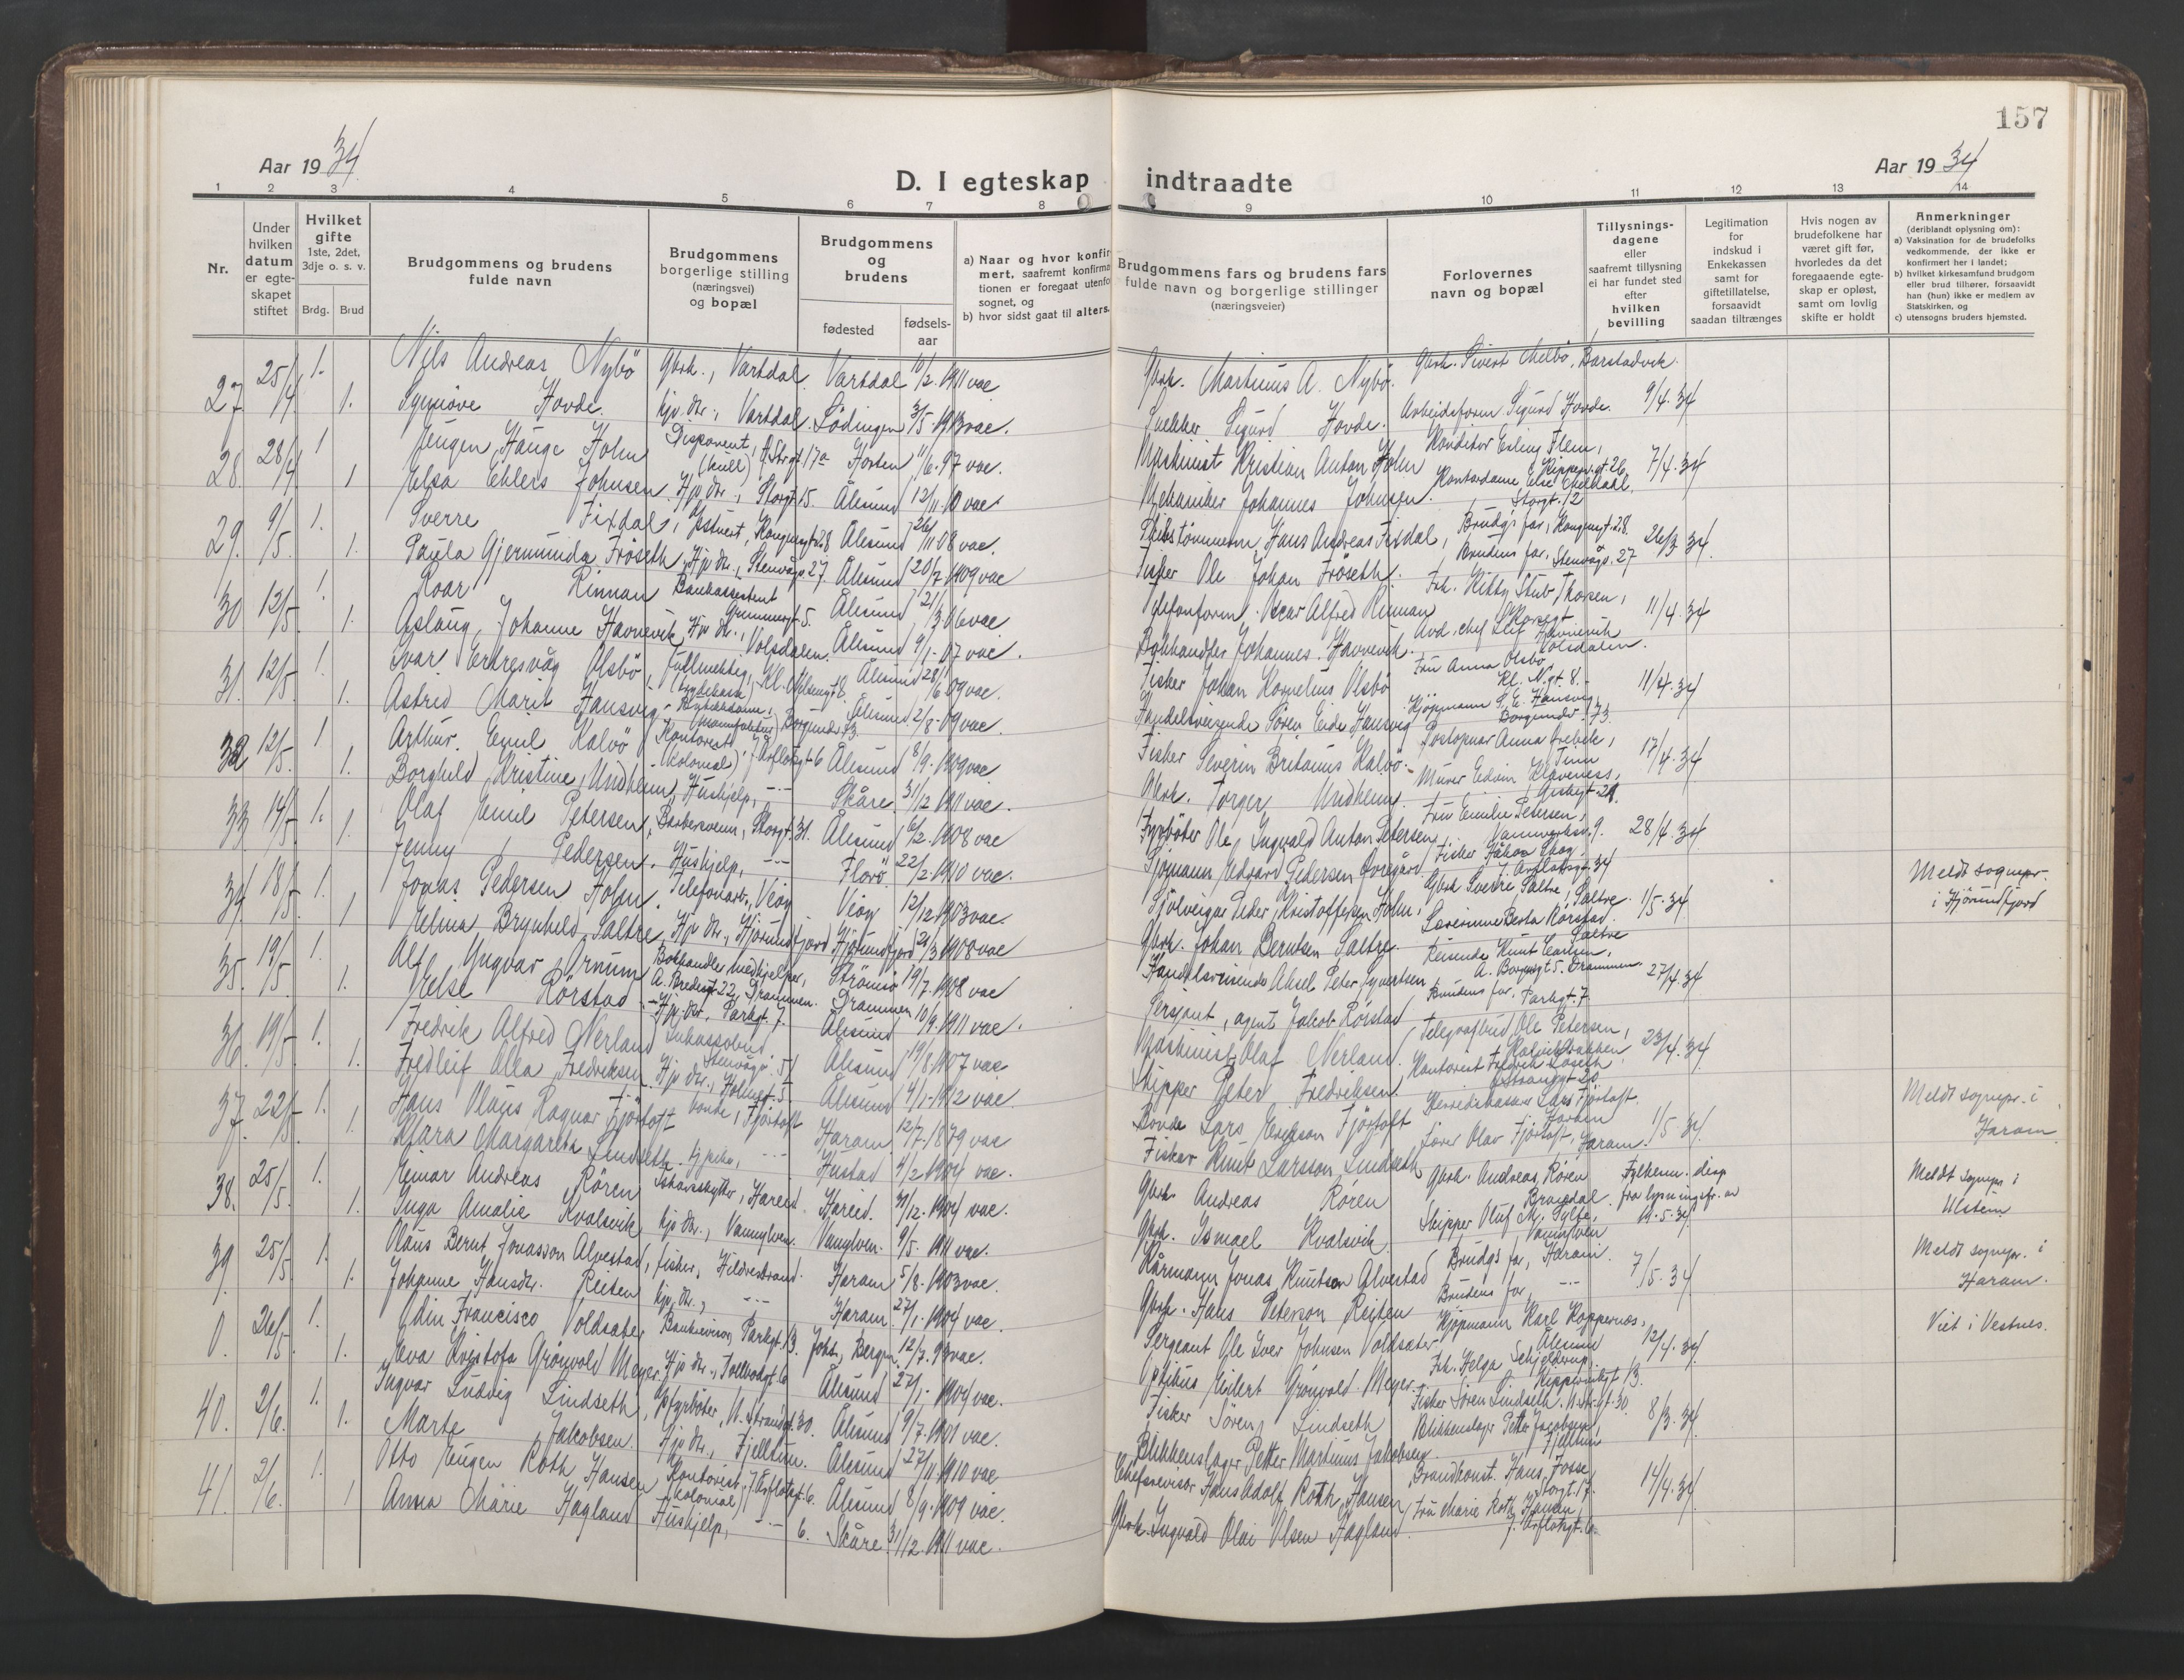 157
Aar 1934
Aar 1934
D. I egteskap indtraadte
1 2 3 4 5 6 7 8 9 10 11 12 13 14
Nr.
Under hvilken datum er egteskapet stiftet
Hvilket gifte 1ste, 2det, 3dje o. s. v.
Brdg. Brud
Brudgommens og brudens fulde navn
Brudgommens borgerlige stilling (næringsvei) og bopæl
Brudgommens og brudens
fødested
fødsels-aar
a) Naar og hvor konfir
mert, saafremt konfirma
tionen er foregaat utenfo
sognet, og
b) hvor sidst gaat til alters.
Brudgommens fars og brudens fars fulde navn og borgerlige stillinger (næringsveier)
Forlovernes navn og bopæl
Tillysnings-dagene eller saafremt tillysning ei har fundet sted efter hvilken bevilling
Legitimation for indskud i Enkekassen samt for giftetillatelse, forsaavidt saadan tiltrænges
Hvis nogen av brudefolkene har været gift før, hvorledes da det foregaaende egteskap er opløst, samt om lovlig skifte er holdt
Anmerkninger
(deriblandt oplysning om):
a) Vaksination for de brudefolks vedkommende, der ikke er konfirmert her i landet;
b) hvilket kirkesamfund brudgom eller brud tilhører, forsaavidt han (hun) ikke er medlem av Statskirken, og
c) utensogns bruders hjemsted.
27 25/4 1. Nils Andreas Nybö Gbrk., Vartdal. Vartdal 10/2 1911 vac Gbrk. Martinus A. Nybö. Gbrk. Sivert Melbö, Barstadvik.
1. Synnöve Hovde. hjv. dtr., Vartdal. Lödingen 3/5 1913 vac. Snekker Sigurd Hovde. Arbeidsform. Sigurd Hovde. 9/4 34
28. 28/4 1 Jörgen Hauge Holm Disponent, (kull) 17a Horten 11/6. 97 vac. Maskinist Kristian Anton Holm Konditor Erling Flem, Kipperv.gt 26, 7/4. 34
1 Elsa Ehlers Johnsen. Hjv. dtr., Storgt. 15. Ålesund 12/11. 10 vac Mekaniker Johannes Johnsen. Kontordame Else Storgt. 12
29. 9/5. 1. Sverre Fixdal, Kongensgt. 28 Ålesund 26/11 08 vac. Skibstömmerm. Hans Andreas Fixdal, Brudg's far, Kongensgt. 28. 26/3 34.
1. Paula Gjermunda Fröseth, Hjv. dtr., Stenvågv 27. Ålesund 20/7 1909 vac Fisker Ole Johan Fröseth. Brudens far, Stenvågv. 27
30 12/5. 1. Roar Rinnan Bankassistent 5. Ålesund 21/3. 06 vac Oscar Alfred Rinnan Frk. Kitty Stub Thorsen, 11/4. 34
1. Aslaug Johanne Havnevik, Hjv. dtr., Volsdalen. Ålesund 9/1 - 07 vac. Bokhandler Johannes Havnevik. Avd. chef Leif Havnevik Volsdalen.
31. 12/5. 1. Ivar Erkresvåg Olsbö, Fullmektig, Kl. Nilsensgt 8. Ålesund 28/6 09 vac. Fisker Johan Kornelius Olsbö Fru Anna Olsbö, Kl. N.gt 8. - 11/4. 34
1. Astrid Marit Hansvig. Butikkdame, (Manufaktur) Borgundv 73. Ålesund 2/8. 09 vac. Handelsreisende Sören Eide Hansvig Kjöpmann S. E. Hansvig, Borgundv. 73.
32 12/5. 1 Arthur Emil Kalvö Kontorist (kolonial) J. Aaflötsgt. 6 Ålesund 8/9. 1909 vac Fisker Severin Britanius Kalvö. Postopnar Anna 17/4. 34
1. Borghild Kristine Undheim, Hushjelp, -"- Skåre 31/12 1911 vac. Gbrk. Torger Undheim. Murer Edvin Klaveness,
33 14/5. 1. Olaf Emil Petersen, Barbersvenn, Storgt. 31. Ålesund 6/2. 1908 vac Fyrböter Ole Ingvald Anton Petersen, Fru Emilie Petersen, 9. 28/4. 34
1. Jenny Pedersen. Hushjelp, -"- Florö. 22/2. 1910 vac. Sjömann Edvard Pedersen Fisker Håkon J. Aaflötsgt. 34
34. 18/5. 1. Jonas Pedersen Holm. Telefonarb., Veöy Veöy 12/12 1903 vac. Peder Kristoffersen Holm, Gbrk Sverre Sætre, Sætre. 1/5. 34 Meldt sognepr. i Hjörundfjord
1 Helma Brynhild Sætre. Hjv. dtr., Hjörundfjord Hjörundfjord 21/3 1908 vac Gbrk. Johan Berntsen Sætre. Lærerinne Berta Rörstad. Sætre
35. 19/5. 1. Alf Yngvar Ornum Bokhandlermedhjelper, A. Bredesgt 22, Drammen. Strömsö 19/7. 1908 vac Handelsreisende Aksel Peter Syvertsen Reisende Knut Carlsen, A. 5. Drammen 27/4. 34
1. Else Rörstad. Hjv. dtr., Parkgt. 7. Drammen 10/9. 1911 vac. Sersjant, agent Jakob Rörstad Brudens far, Parkgt. 7
36. 19/5. 1. Fredrik Alfred Nerland Inkassobud. Stenvågv. 51 Ålesund 19/8. 1907 vac Maskinist Olaf Nerland. Telegrafbud Ole Petersen, 23/4. 34
1. Fredleif Olla Fredriksen. Hjv. dtr., Holmegt. 5. Ålesund 4/1 - 1912 vac. Skipper Peter Fredriksen. Kontorist Fredrik Ö. Strandgt 20
37. 22/5. 1. Hans Olaus Ragnar Fjörtoft bonde, Fjörtoft Haram 12/7. 1879 vac Bonde Lars Eriksson Fjörtoft Herredskasserer Lars Fjörtoft. Haram 1/5. 34 Meldt sognepr. i Haram
1. Klara Margareta Lindseth. hjv pike, -"- Hustad 4/2 1904 vac. Fisker Knut Larsson Lindseth Lærer Olav Fjörtoft, Haram.
38. 25/5. 1. Einar Andreas Rören Hareid. Hareid. 31/12. 1904 vac. Gbrk. Andreas Rören Gbrk. Andreas Rören Fylkesm. disp. fra lysningsfr. av 11. 5. 34 Meldt sognepr i Ulstein
1. Inga Amalie Kvalsvik hjv dtr., Vannylven. Vannylven. 9/5. 1911 vac. Gbrk. Ismael Kvalsvik. Skipper Oluf M. Sylte, Vannylven
39. 25/5. 1. Olaus Bernt Jonasson Alvestad, fisker, Hildrestrand. Haram 5/8. 1903 vac. Kårmann Jonas Knutson Alvestad Brudg's far, Haram. 7/5. 34 Meldt sognepr. i Haram.
1. Johanne Hansdtr. Reiten hjv. dtr., -"- Haram. 27/1. 1904 vac. Gbrk. Hans Peterson Reiten Brudens far, -"-
0. 26/5. 1. Odin Francisco Voldsæter Bankrevisor, Parkgt. 13. Joh., Bergen. 12/7. 93 vac. Sergeant Ole Iver Johnsen Voldsæter, Kjöpmann Karl Koppernæs, Ålesund 12/4. 34 Viet i Vestnes.
1. Eva Kristofa Grönvold Meyer. Hjv dtr., Tollbodgt. 6 Ålesund 27/1 - 1904 vac. Optikus Eilert Grönvold Meyer. Frk. Helga Schjelderup, 13.
40. 2/6. 1. Ingvar Ludvig Lindseth, fyrböter, N. Strandgt. 30. Ålesund 9/7. 1901 vac. Fisker Sören Lindseth Fisker Sören Lindseth, N. Str.gt. 30. 8/3. 34
1. Marte Jakobsen. Hjv dtr., Fjelltun. Ålesund 27/11 1910 vac Blikkenslager Petter Martinus Jakobsen. Blikkenslager Petter Jacobsen, Fjelltun
41. 2/6. 1. Otto Eugen Roth Hansen Kontorist, (kolonial) J. Aaflötsgt. 6. Ålesund 8/9. 1909 vac. Chefsrevisor Hans Adolf Roth Hansen, Brandkonst. Hans Fosse, Storgt. 17. 14/4. 34
1 Anna Marie Hagland Hushjelp, -"- 6. Skåre. 31/12. 1911 vac. Gbrk. Ingvald Olai Olsen Hagland. Fru Marie Roth Hansen, J. Aaflötsgt. 6.